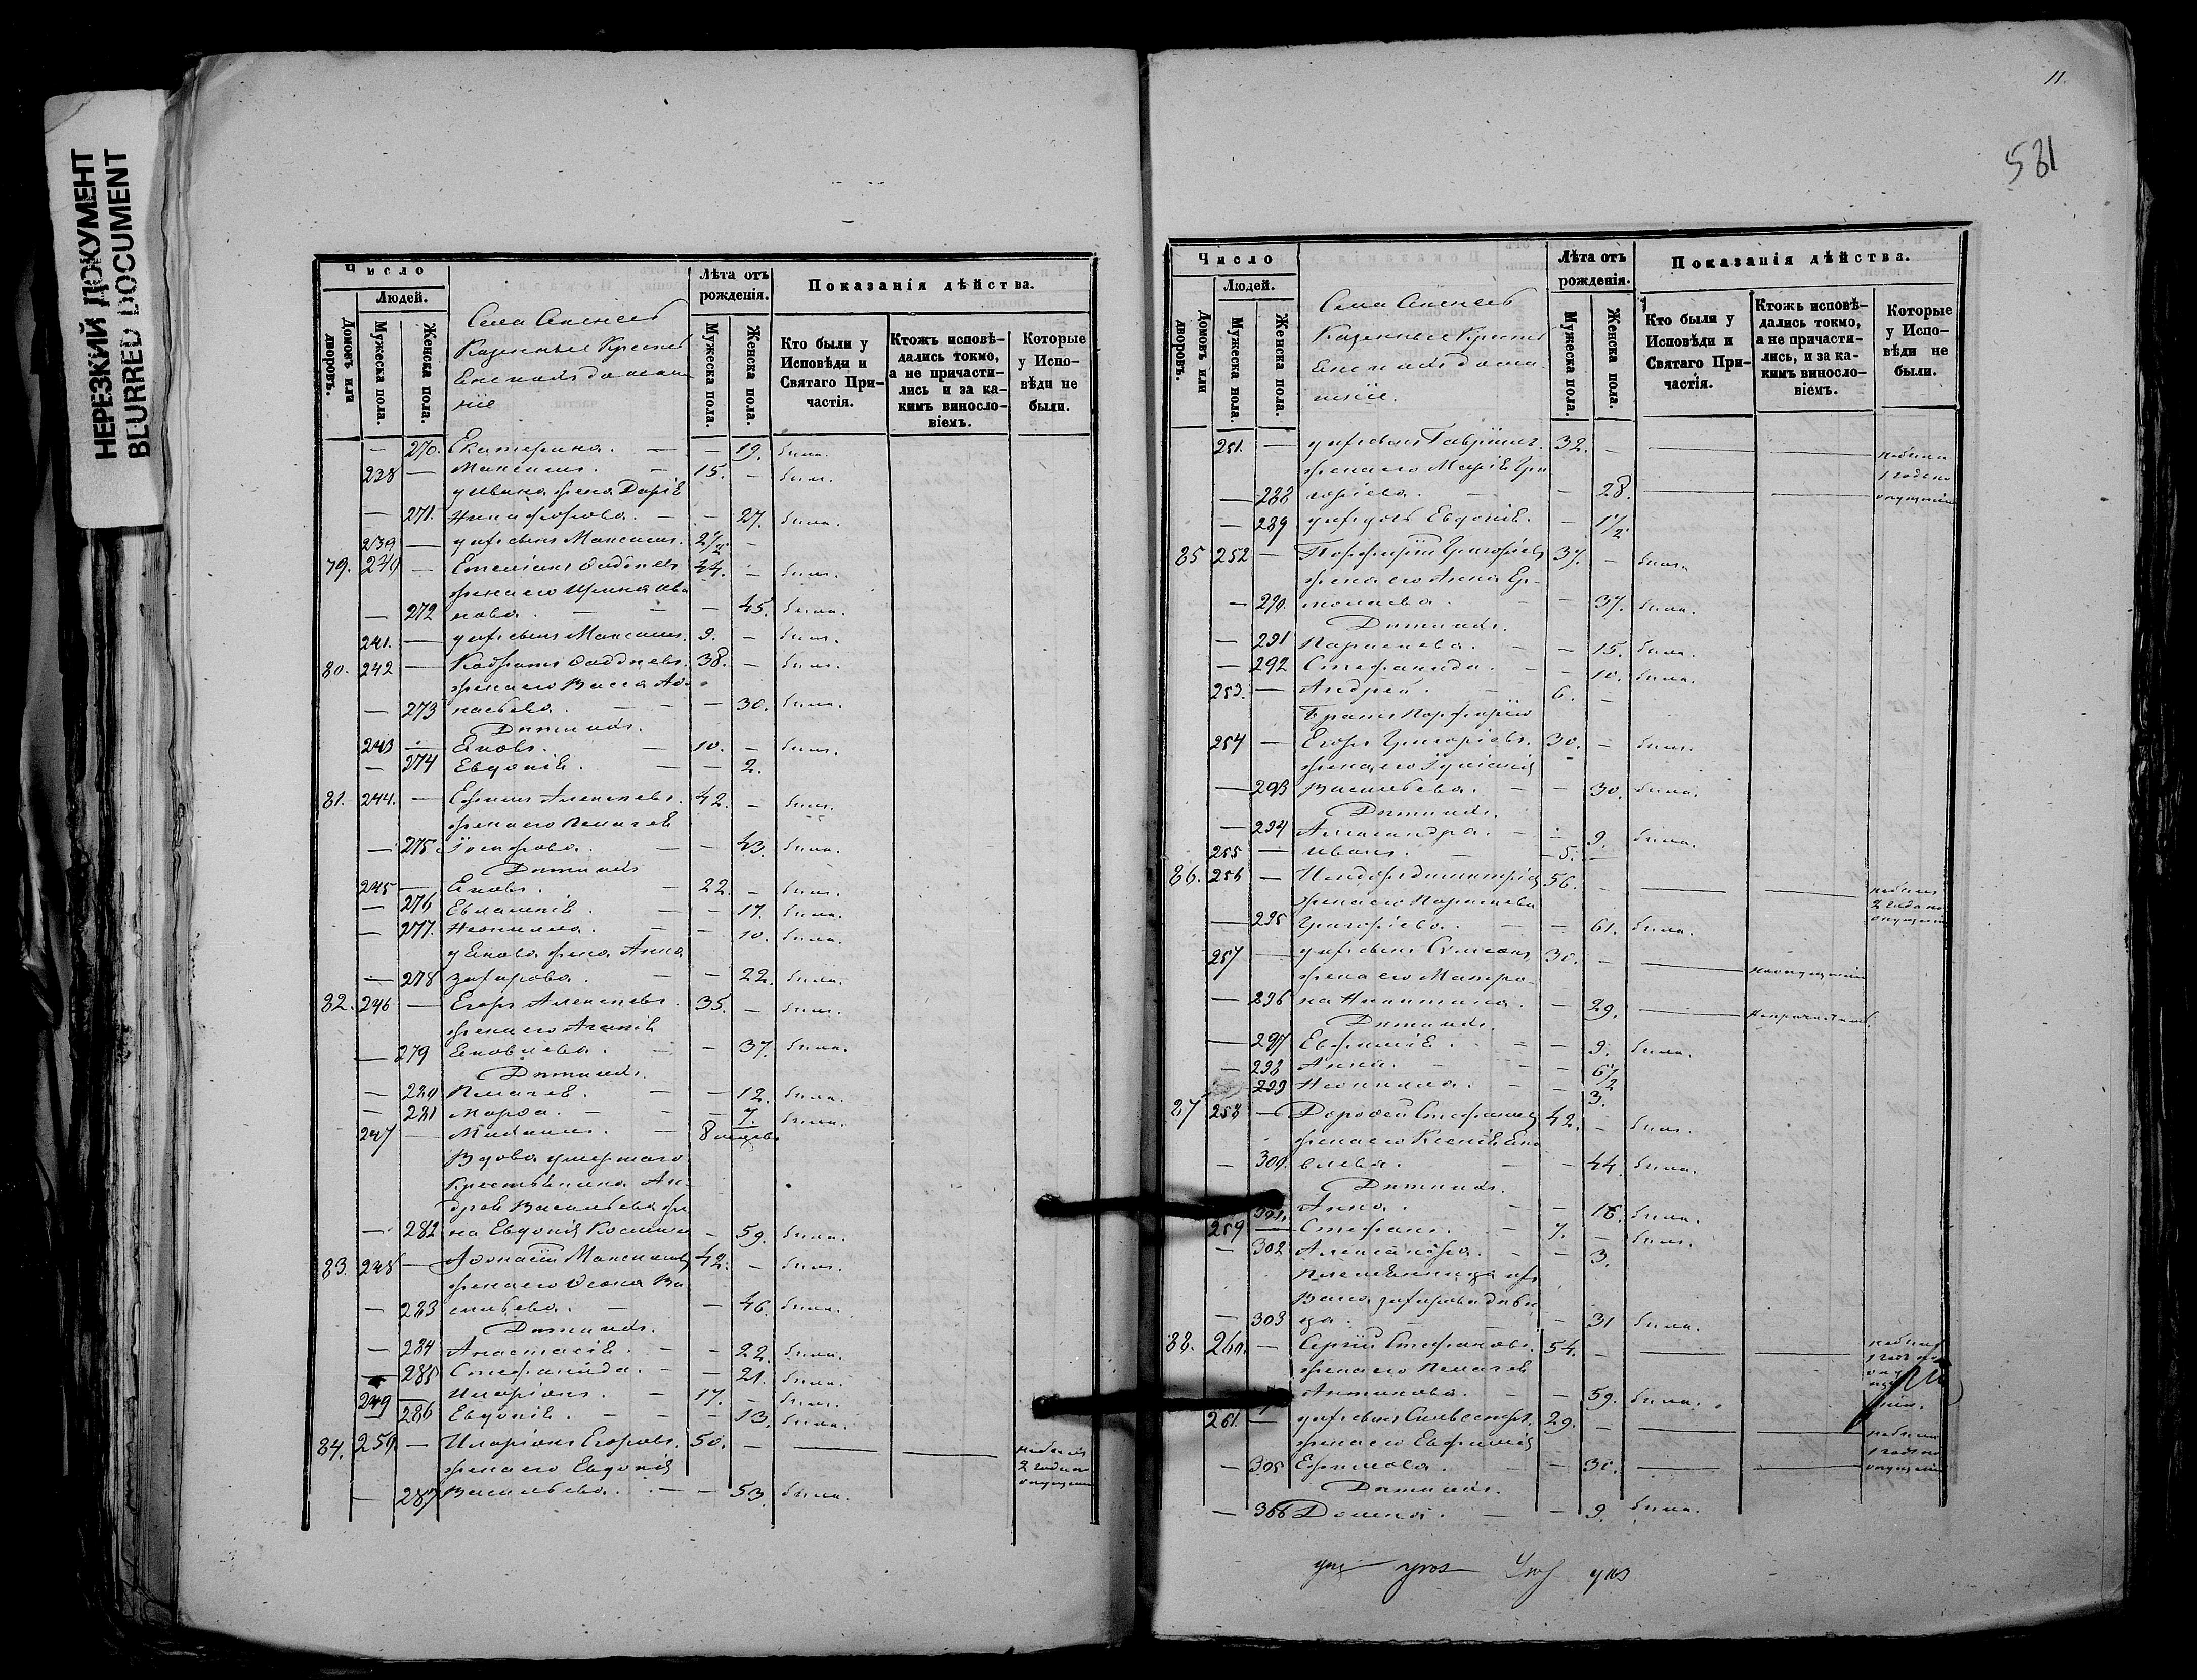 НЕРЕЗКИЙ ДОКУМЕНТ
BLURRED DOCUMENT
Число
Людей.
Домовъ или дворовъ.
Мужеска пола.
Женска пола.
Села
Казенные
Лѣта отъ рожденія.
Мужеска пола.
Женска пола.
Показанія дѣйства.
Кто были у Исповѣди и Святаго Причастія.
Ктожъ исповѣдались токмо, а не причастились и за какимъ винословіемъ.
Которые у Исповѣди не были.
— 270. Екатерина. — — 19. была.
238 — Максимъ. — 15. — былъ.
у Ивана жена Дарія
— 271. Никифорова. — — 27. была.
239 — у нихъ сынъ Максимъ. 2 1/2 —
79. 240 — Емеліанъ Фаддѣевъ 44. — былъ.
жена его Ирина Ива
— 272 нова. — — 45. была.
241. — у нихъ сынъ Максимъ. 9. — былъ.
80. 242 — Кодратъ Фаддѣевъ. 38. — былъ.
жена его Васса Аѳа
— 273 насьева. — — 30. была.
Дѣти ихъ.
243 — Яковъ. — 10. — былъ.
— 274 Евдокія. — — 2.
81. 244. — Ефимъ Алексѣевъ. 42. — былъ.
жена его Пелагея
— 275 — — 43. была.
Дѣти ихъ
245 — Яковъ. — 22. — былъ.
— 276 Евлампія. — — 17. была.
— 277. Неонилла. — — 10. была.
у Якова жена Анна
— 278 Захарова. — — 22. была.
82. 246 — Егоръ Алексѣевъ. 35. — былъ.
жена его Агапія
— 279 Яковлева. — — 37. была.
Дѣти ихъ.
— 280 Пелагея. — — 12. была.
— 281 Марѳа. — — 7. была.
247 — Михаилъ. — 8 мѣсяцевъ
Вдова умершаго
Крестьянина Ан-
дрея Васильева же
— 282 на Евдокія Космина — 59. была.
83. 248 — Аѳонасій Максимовъ 42. — былъ.
жена его Ѳекла Ва
— 283 сильева. — — 46. была.
Дѣти ихъ.
— 284 Анастасія. — — 22. была.
— 285 Стефанида. — — 21. была.
249 — Иларіонъ. — 17. — былъ.
— 286 Евдокія. — — 13. была.
84. 250. — Иларіонъ Егоровъ. 50. — — — не былъ
жена его Евдокія 2 года по
— 287 Васильева. — — 53. была. опущенію
11.
581
Число
Людей.
Домовъ или дворовъ.
Мужеска пола.
Женска пола.
Села
Казенные
Лѣта отъ рожденія.
Мужеска пола.
Женска пола.
Показанія дѣйства.
Кто были у Исповѣди и Святаго Причастія.
Ктожъ исповѣдались токмо, а не причастились, и за какимъ винословіемъ.
Которые у Исповѣди не были.
251. — у нихъ сынъ Гавріилъ. 32. — — — не были
жена его Марія Гри 1 годъ по
— 288 горіева. — — 28. — — опущенію
— 289 у нихъ дочь Евдокія. — 1 1/2.
85 252 — Порфирій Григорьевъ 37. — былъ.
жена его Анна Ер-
— 290. молаева. — — 37. была.
Дѣти ихъ.
— 291 Парасковья. — — 15. была.
— 292 Стефанида. — — 10. была.
253. — Андрей. — 6. —
Братъ Порфирія
254 — Егоръ Григоріевъ. 30. — былъ.
жена его Іуліанія
— 293 Васильева. — — 30. была.
Дѣти ихъ.
— 294 Александра. — — 9. была.
255 — Иванъ. — 5. —
86. 256 — Исидоръ Димитріевъ 56. — — — не былъ
2 года по
— 295 Григоріева. — — 61. была. опущенію
257 — у нихъ сынъ Симеонъ 30. — — по опущенію
жена его Матро-
— 296 на Никитина. — — 29. —
Дѣти ихъ.
— 297 Евфимія. — — 9. была.
— 298 Анна. — — 6 1/2
— 299 Неонилла. — — 3.
87 258 — Дороѳей Стефановъ 42. — былъ.
жена его Ксенія Яко
— 300. влева. — — 44. была.
Дѣти ихъ.
301. Анна. — — 16. была.
259 — Стефанъ. — 7. — былъ.
— 302 Александра. — — 3.
Племянница ихъ
Васса Захарова дѣви
— 303 ца. — — 31 была.
88. 260. — Сергій Стефановъ. 54. — — — не былъ
жена его Пелагея 1 годъ по
Антонова. — — 59. была.
261. — у нихъ сынъ Сильвестръ. 29. — — — не были
жена его Евфимія 1 годъ по
— 305 Ефимова. — — 30. — — опущенію
Дѣти ихъ.
— 306 Домна. — — 9. была.